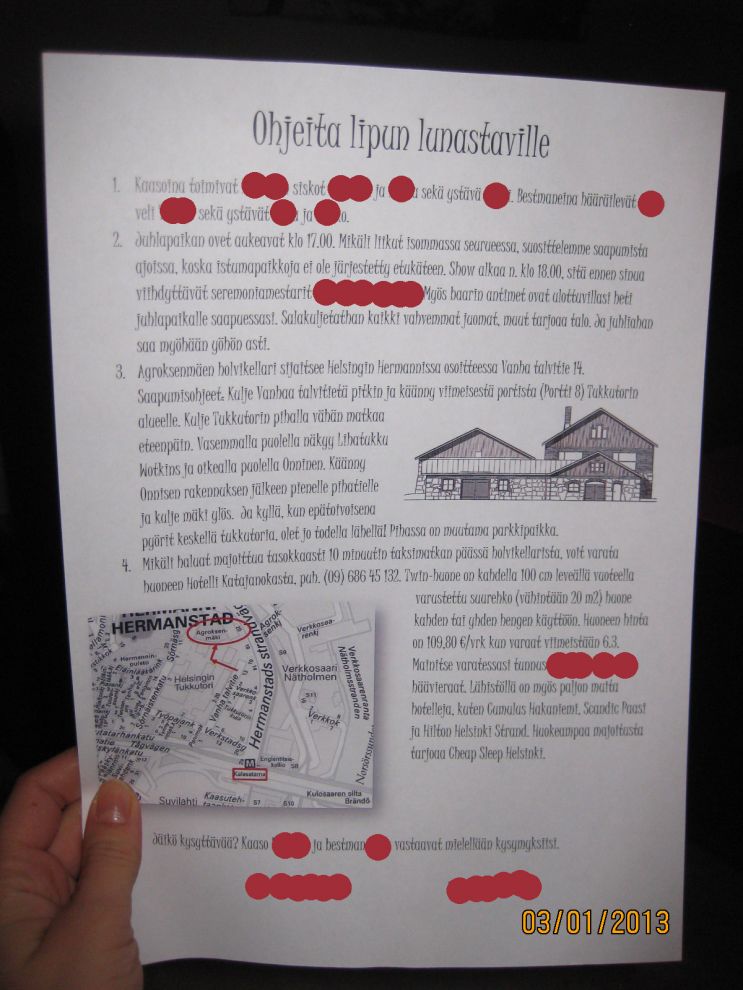 Ohjeita lipun lunastaville
1. Kaasoina toimivat siskot ja sekä ystävä . Bestmaneina hääräilevät
veli sekä ystävät ja
2. Juhlapaikan ovet aukeavat klo 17.00. Mikäli liikut isommassa seurueessa, suosittelemme saapumista
ajoissa, koska istumapaikkoja ei ole järjestetty etukäteen. Show alkaa n. klo 18.00, sitä ennen sinua
viihdyttävät seremoniamestarit Myös baarin antimet ovat ulottuvillasi heti
juhlapaikalle saapuessasi. Salakuljetathan kaikki vahvemmat juomat, muut tarjoaa talo. Ja juhliahan
saa myöhään yöhön asti.
3. Agroksenmäen holvikellari sijaitsee Helsingin Hermannissa osoitteessa Vanha talvitie 14.
Saapumisohjeet: Kulje Vanhaa talvitietä pitkin ja käänny viimeisestä portista (Portti 8) Tukkutorin
alueelle. Kulje Tukkutorin pihalla vähän matkaa
eteenpäin. Vasemmalla puolella näkyy Lihatukku
Wotkins ja oikealla puolella Onninen. Käänny
Onnisen rakennuksen jälkeen pienelle pihatielle
ja kulje mäki ylös. Ja kyllä, kun epätoivoisena
pyörit keskellä tukkutoria, olet jo todella lähellä! Pihassa on muutama parkkipaikka.
4. Mikäli haluat majoittua tasokkaasti 10 minuutin taksimatkan päässä holvikellarista, voit varata
huoneen Hotelli Katajanokasta, puh. (09) 686 45 132. Twin-huone on kahdella 100 cm leveällä vuoteella
varustettu suurehko (vähintään 20 m2) huone
kahden tai yhden hengen käyttöön. Huoneen hinta
on 109,80 €/vrk kun varaat viimeistään 6.3.
Mainitse varatessasi tunnus
häävieraat. Lähistöllä on myös paljon muita
hotelleja, kuten Cumulus Hakaniemi, Scandic Paasi
ja Hilton Helsinki Strand. Huokeampaa majoitusta
tarjoaa Cheap Sleep Helsinki.
HERMANNI
HERMANSTAD
Agroksen-
mäki
Hermannin-
puisto
Helsingin
Tukkutori
Hermanstads strandväg
Vanha talvitie
Verkkosaa-
renkj
Verkkosaari
Nätholmen
Verkkosaarenranta
Nätholmsstranden
S11
Verkkok
Sörnäistenkatu
Työpajank
Verkstadsg
Tägvägen
M
Kalasatama
Englantilais-
kallio
S8
Suvilahti
Kaasuteh-
S7
S10
Kulosaaren silta
Brändö
Norrsund
Jäikö kysyttävää? Kaaso ja bestman vastaavat mielellään kysymyksiisi.
03/01/2013